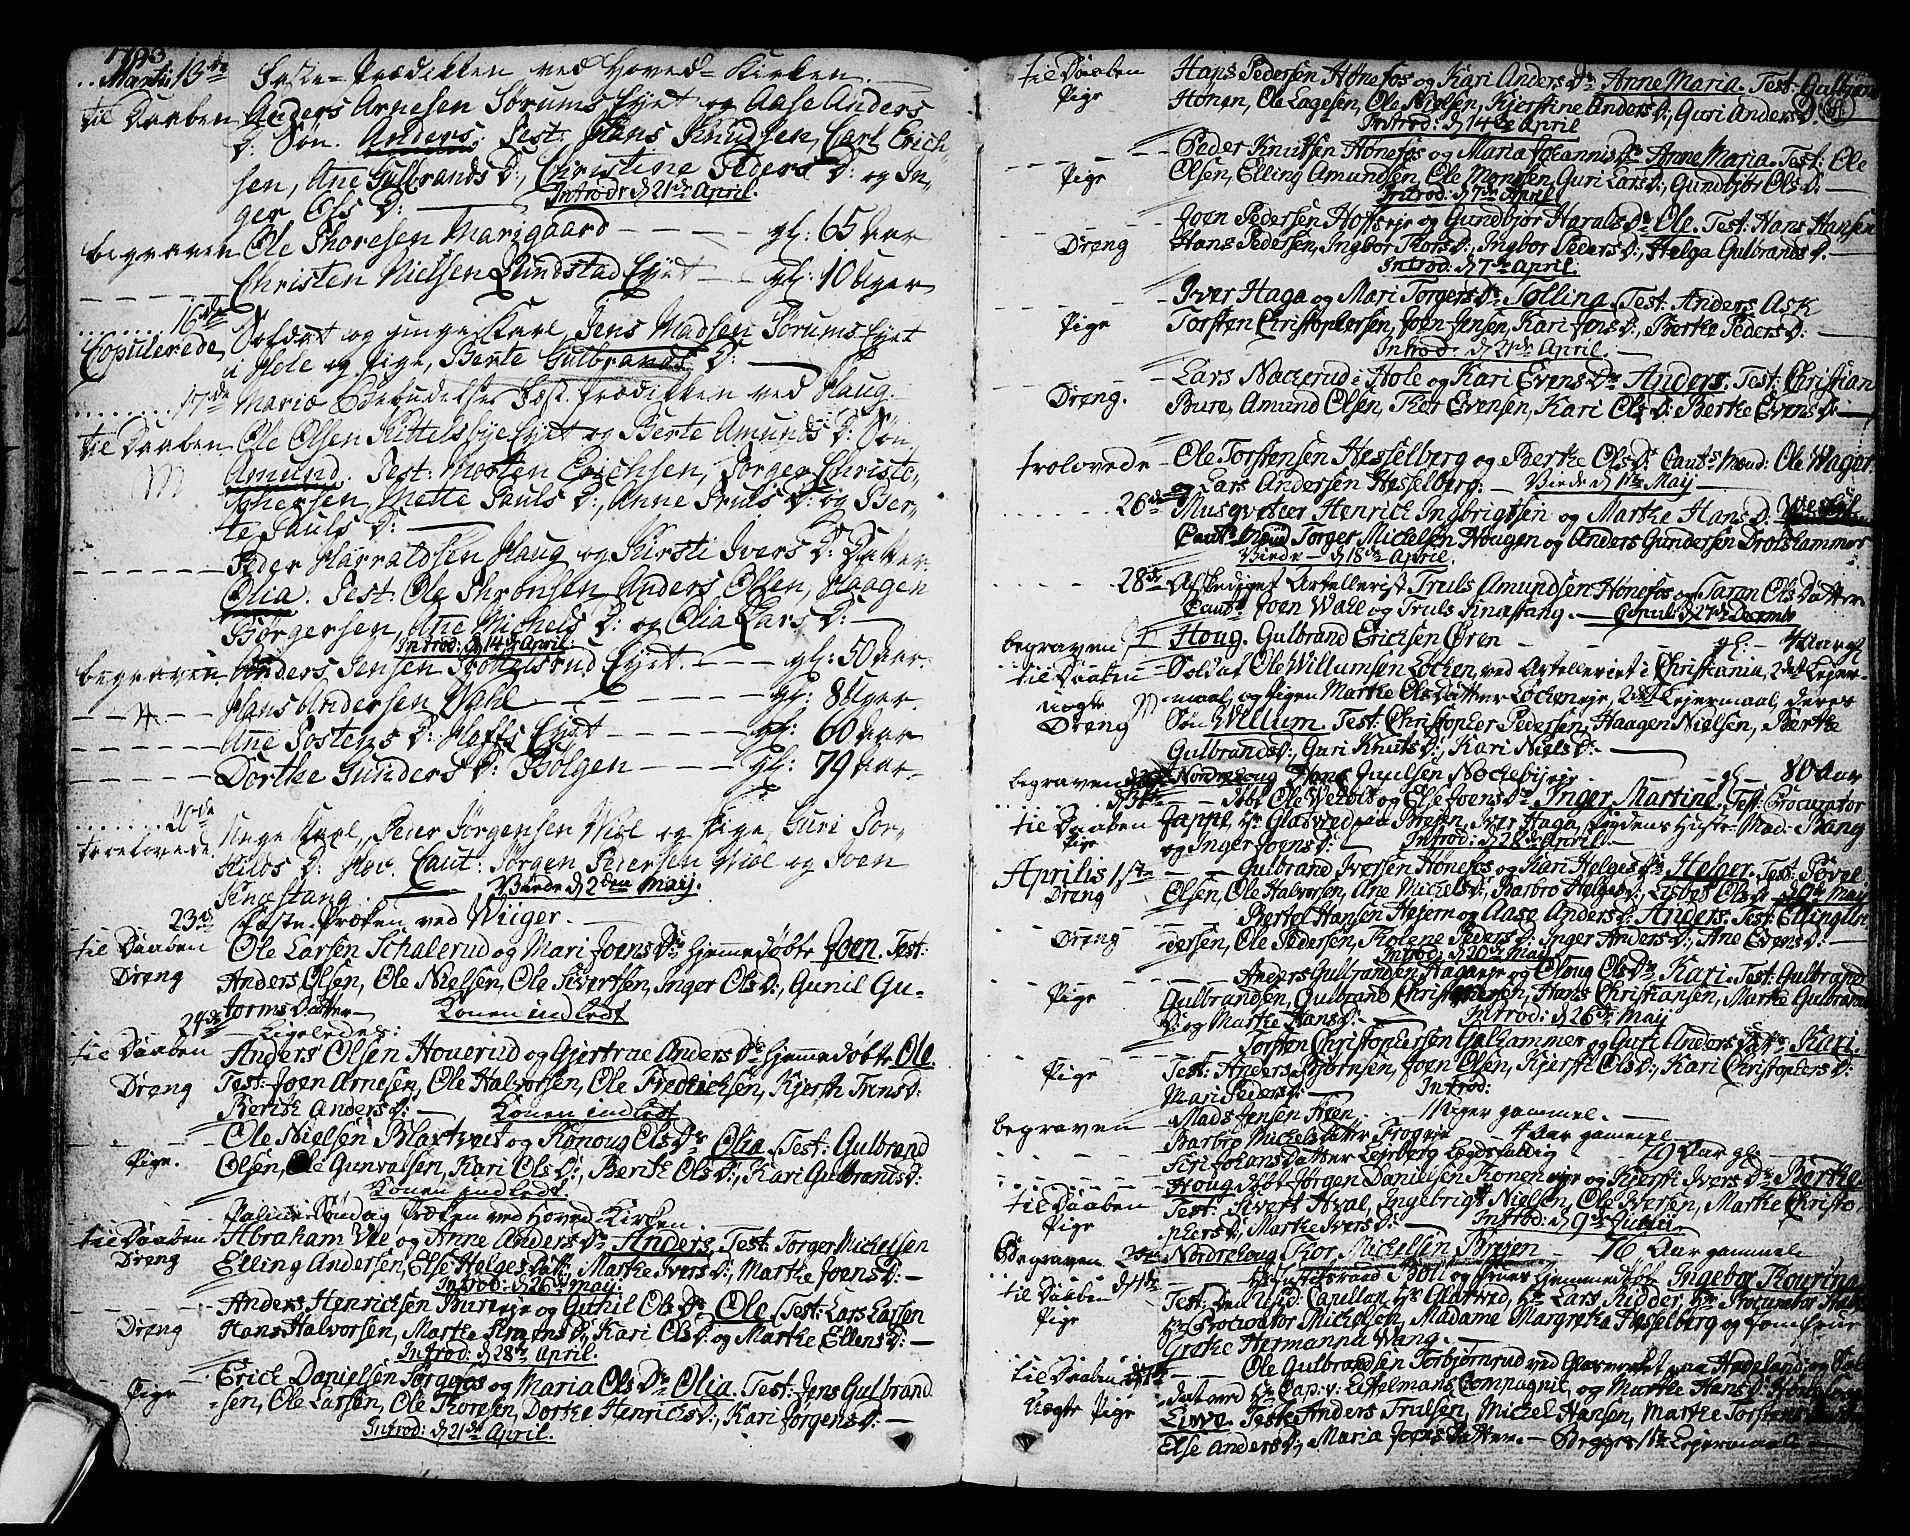 1793
Martii 13de Faste=Prædikken ved Hoved=Kirken.
til Daaben Anders Arnesen Sørums Eyet og Aase Anders
D: Søn. Anders. Test: Hans Knudsen, Carl Erich-
sen, Ane Gulbrands D:, Christine Peders D: og In-
ger Ols D: Introd: d 21de April.
begraven Ole Thoresen Marigaard gl: 65 Aar
Christen Nielsen Lundstad Eyet gl: 10 Uger
16de
Copulerede Soldat og unge Karl, Jens Madsen Sørums Eyet
i Hole og Pige, Berte Gulbrands D:
17de Mariæ Bebudelses Fest. Prædikken ved Haug.
til Daaben Ole Olsen Kittelsbye Eyet og Berte Amunds D: Søn
Amund. Test: Morten Erichsen, Jørgen Christo-
phersen, Mette Pauls D:, Anne Truls D: og Ber-
te Pauls D:
Peder Harraldsen Haug og Kirsti Ivers D: Datter
Olia. Test: Ole Thronsen, Anders Olsen, Haagen
Børgersen, Ane Michels D: og Olia Lars D:
Introd: d 14de April.
begraven Anders Jensen Eyet. gl: 50 Aar
Hans Andersen Wahl gl: 8 Uger
Ane Jostens D: Hoffs Eyet gl: 60 Aar
Dorthe Gunders D: Bølgen gl: 79 Aar
20de
troelovede Unge Karl, Peder Jørgensen Wiol og Pige, Guri Tor-
kilds D: Hov. Caut: Jørgen Pedersen Wiol og Joen
Knestang. Viede d 2den Maij.
23de Faste-Præken ved Wiiger.
til Daaben Ole Larsen Schalerud og Mari Joens Dr hjemmedøbte Joen. Test:
Dreng Anders Olsen, Ole Nielsen, Ole Sivertsen, Inger Ols D:, Gunil Gu-
torms Datter Konen indledt
24de Ligeledes:
til Daaben Anders Olsen Houerud og Gjertrue Anders Dr hjemmedøbte Ole.
Dreng Test: Joen Arnesen, Ole Halvorsen, Ole Fredrichsen, Kjersti Trens D:
Berthe Anders D: Konen indledt
Ole Nielsen Blaxtvet og Rønoug Ols Dr Olia. Test: Gulbrand
Pige. Olsen, Ole Gunvalsen, Kari Ols D:, Berthe Ols D:, Kari Gulbrands D:
Konen indledt.
Palme Søndag Præken ved Hoved Kirken
til Daaben Abraham Vee og Anne Anders Dr Anders. Test: Torger Michelsen
Dreng Elling Andersen, Else Helges Datt, Marthe Ivers D:, Marthe Joens D:
Introd: d 26de Maij.
Anders Henrichsen Bureeje og Gunil Ols Dr Ole. Test: Lars Larsen
Dreng Hans Halvorsen, Marthe D:, Kari Ols D: og Marthe Ellens D:
Introd: d 28de April.
Erick Danielsen og Maria Ols Dr Olia. Test: Jens Gulbrand
Pige sen, Ole Larsen, Ole Thoresen, Dorthe Henrichs D:, Kari Jørgens D:
Introd: d 21de April.
til Daaben Hans Pedersen Hønefos og Kari Anders Dr Anne Maria. Test: Gulbrand
Pige Hønen, Ole Lagesen, Ole Nielsen, Kjerstine Anders D:, Guri Anders D:
Introd: d 14de April
Peder Knutsen Hønefos og Maria Johannis Dr Anne Maria. Test: Ole
Pige Olsen, Elling Amundsen, Ole Monsen, Guri Lars D:, Gundbjør Ols D:
Introd: d 7de April
Joen Pedersen Hoffseje og Gundbjør Haralds Dr Ole. Test: Hans Hansen
Dreng Hans Pedersen, Ingbor Thors D:, Ingbor Peders D:, Helga Gulbrands D:
Introd: d 7de April.
Iver Haga og Mari Torgers Dr Tolline. Test: Anders Ask
Pige Torsten Christophersen, Joen Jensen, Kari Jens D:, Berthe Peders D:
Introd: d 21de April.
Lars Nackerud i Hole og Kari Evens Dr Anders. Test: Christian
Dreng. Bure, Amund Olsen, Thor Evensen, Kari Ols D: Berthe Evens D:
trolovede Ole Torstensen Hesselberg og Berthe Ols D: Caut: Mend: Ole Wager
og Lars Andersen Hesselberg: Viede d 1te Maij
26de Musqveteer Henrich Ingbrigtsen og Marthe Hans D:
Caut: Mend Torger Michelsen Hougen og Anders Gundersen Trolshammer
Viede d 18de April.
28de Afskediget Artellerist Truls Amundsen Hønefos og Taran Ols Datter
Caut: Joen Wall og Truls Copul: d 27de Decemb
begraven Houg. Gulbrand Ericksen Øren gl: 4 Aar
til Daaben Soldat Ole Willumsen Løcken, ved Artelleriet i Christiania, 2det Lejer-
uægte maal, og Pigen Marthe Ols Datter Lockeneje, 2det Lejermaal, deres
Dreng Søn Willum. Test: Christopher Pedersen, Haagen Nielsen, Berthe
Gulbrands D:, Guri Knuts D:, Kari Niels D:
begraven Nordrehoug Hans Juulsen Nockebyeje gl: 80 Aar
d 31te
til Daaben døbt Ole Wetvolt og Else Joens Dr Inger Martine. Test: Procurator
Pige Jappe, Hr Glatved paa Brejen, Iver Haga, Mad: Bang
og Inger Joens D: Introd: d 28de April.
Aprilis 1ste Gulbrand Iversen Hønefos og Kari Helges Dr Helger. Test: Povel
Dreng Olsen, Ole Halvorsen, Ane Michels D:, Barbro Helges D:, Lisbet Ols D: Maij
Bertel Hansen Hejern og Aase Anders D: Anders. Test: Elling An-
Dreng dersen, Ole Pedersen, Tholene Peders D: Inger Anders D:, Ane Evens D:
Introd: d 20de Maij
Anders Gulbrandsen Hagaeje og Oloug Ols Dr Kari. Test: Gulbrand
Pige Gulbrandsen, Gulbrand Christophersen, Hans Christiansen, Marthe Gulbrand
D: og Marthe Hans D: Introd: d 26de Maij
Torsten Christophersen Galhammer og Guri Anders Datter Kari.
Pige Test: Anders Bjørnsen, Joen Olsen, Kjersti Ols D:, Kari Christophers D:
Mari Peders D: Introd:
begraven Mads Jensen Uger gammel.
Barbro Michels Datter Frogeje 4 Aar gammel
Siri Johans Datter Lejeberg Legdsfaldig 79 Aar gl:
til Daaben Houg døbt Jørgen Danielsen eje og Kjersti Ivers Dr Berthe.
Pige Test: Sivert Hval, Ingebrigt Nielsen, Ole Iversen, Marthe Christo
phers D:, Marthe Ivers D: Introd: d 9de Junii
Begraven 2den Nordrehoug Thor Michelsen Brejen 76 Aar gammel
til Daaben d 4de Boll og Frues hjemmedøbte Ingebor Thourina.
Pige Test: Den resid: Capellan Hr Glatved, Hr Lars Ridder, Hr Procurator
Hr Procurator Michelsen, Madame Margretha Hesselberg og Jomfrue
Grethe Hermanna Wang.
til Daaben Ole Gulbrandsen Torbjørnrud ved Glasværket paa Hadeland og Sol
Uægte Pige dat ved Hr Cap: v: Eitzelmans Compagnie, og Marthe Hans D:
Live. Test: Anders Trulsen, Michel Hansen, Marthe Torstens
Else Anders D:, Maria Joens Datter. Begges 1ste Lejermaal